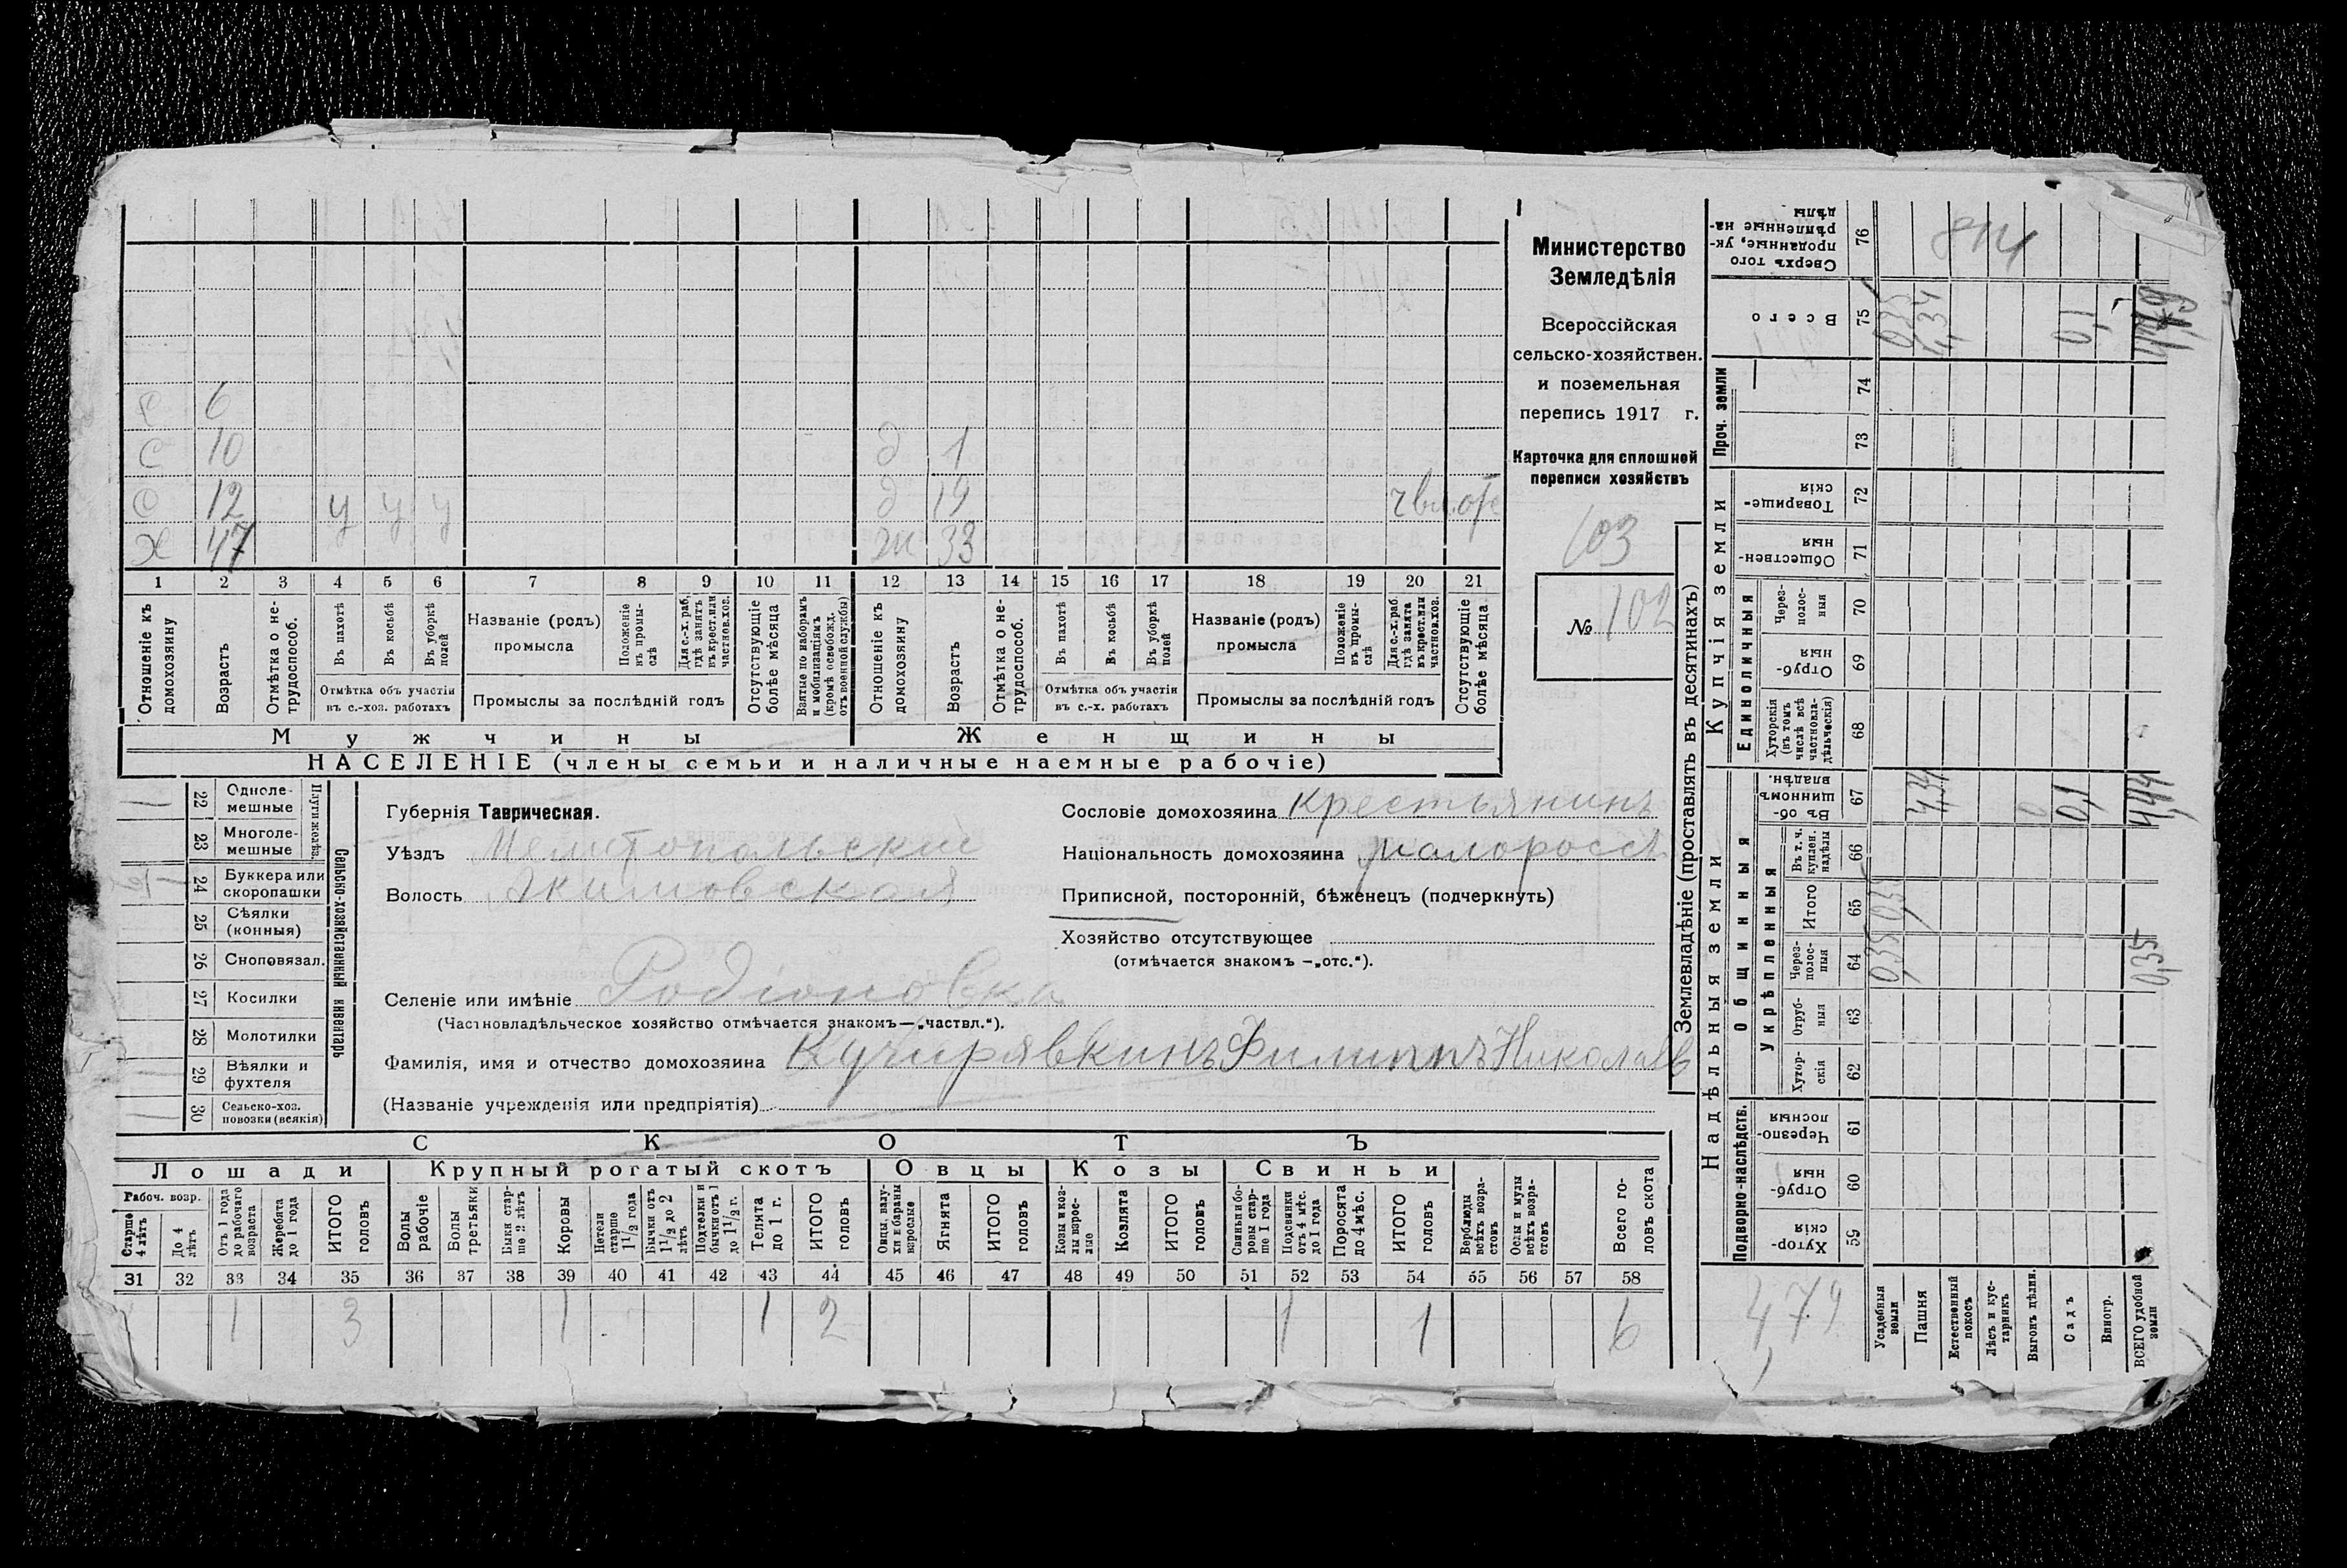 С 6
С 10 д 1
С 12 у у у д 19
Х 47 ж 33
1 2 3 4 5 6 7 8 9 10 11 12 13 14 15 16 17 18 19 20 21
Отношеніе къ домохозяину
Возрастъ
Отмѣтка о не-трудоспособ.
Въ пахотѣ
Въ косьбѣ
Въ уборкѣ полей
Отмѣтка объ участіи въ с.-хоз. работахъ
Названіе (родъ) промысла
Положеніе въ промы-слѣ
Для с.-х. раб. гдѣ занятъ въ крест. или частнов. хоз.
Промыслы за послѣдній годъ
Отсутствующіе болѣе мѣсяца
Взятые по наборамъ и мобилизаціямъ (кромѣ освобожд. отъ военной службы)
Отношеніе къ домохозяину
Возрастъ
Отмѣтка о не-трудоспособ.
Въ пахотѣ
Въ косьбѣ
Въ уборкѣ полей
Отмѣтка объ участіи въ с.-х. работахъ
Названіе (родъ) промысла
Положеніе въ промы-слѣ
Для с.-х. раб. гдѣ занята въ крест. или частнов. хоз.
Промыслы за послѣдній годъ
Отсутствующіе болѣе мѣсяца
Мужчины Женщины
НАСЕЛЕНІЕ (члены семьи и наличные наемные рабочіе)
Министерство
Земледѣлія
Всероссійская
сельско-хозяйствен.
и поземельная
перепись 1917 г.
Карточка для сплошной
переписи хозяйствъ
103
№ 102
22 Одноле-мешные
23 Многоле-мешные
Плуги желѣз.
24 Буккера или скоропашки
25 Сѣялки (конныя)
26 Сноповязал.
27 Косилки
28 Молотилки
29 Вѣялки и фухтеля
30 Сельско-хоз. повозки (всякія)
Сельско-хозяйственный инвентарь
Губернія Таврическая.
Уѣздъ Мелитопольскій
Волость Акимовская
Сословіе домохозяина крестьянинъ
Національность домохозяина малороссъ
Приписной, посторонній, бѣженецъ (подчеркнуть)
Хозяйство отсутствующее
(отмѣчается знакомъ —„отс.“).
Селеніе или имѣніе Родіоновка
(Частновладѣльческое хозяйство отмѣчается знакомъ—„частвл.“).
Фамилія, имя и отчество домохозяина Кучирявкинъ Филиппъ Николаев
(Названіе учрежденія или предпріятія)
СКОТЪ
Лошади Крупный рогатый скотъ Овцы Козы Свиньи
Рабоч. возр.
Старше 4 лѣтъ
До 4 лѣтъ
Отъ 1 года до рабочаго возраста
Жеребята до 1 года
ИТОГО головъ
Волы рабочіе
Волы третьяки
Быки стар-ше 2 лѣтъ
Коровы
Нетели старше 1 1/2 года
Бычки отъ 1 1/2 до 2 лѣтъ
Подтелки и бычки отъ 1 до 1 1/2 г.
Телята до 1 г.
ИТОГО головъ
Овцы, валу-хи и бараны взрослые
Ягнята
ИТОГО головъ
Козы и коз-лы взрос-лые
Козлята
ИТОГО головъ
Свиньи и бо-ровы стар-ше 1 года
Подсвинки отъ 4 мѣс. до 1 года
Поросята до 4 мѣс.
ИТОГО головъ
Верблюды всѣхъ возра-стовъ
Ослы и мулы всѣхъ возра-стовъ
Всего го-ловъ скота
31 32 33 34 35 36 37 38 39 40 41 42 43 44 45 46 47 48 49 50 51 52 53 54 55 56 57 58
1 3 1 1 2 1 1 6
Землевладѣніе (проставлять въ десятинахъ)
Надѣльныя земли
Купчія земли
Проч. земли
Подворно-наслѣдств.
Общинныя
Укрѣпленныя
Единоличныя
Сверхъ того проданные, ук-рѣпленные на-дѣлы 76
Всего 75 0,35 4,34 0,1 4,79
74
73
Товарище-скія 72
Обществен-ныя 71
Через-полос-ныя 70
Отруб-ныя 69
Хуторскія (въ томъ числѣ всѣ частновла-дѣльческія) 68
Въ об-щинномъ владѣн. 67 4,34 0,1 4,44
Въ т. ч. куплен. надѣлы 66
Итого 65
Через-полос-ныя 64 0,35 0,35
Отруб-ныя 63
Хутор-скія 62
Черезпо-лосныя 61
Отруб-ныя 60
Хутор-скія 59
Усадебныя земли
Пашня
Естественный покосъ
Лѣсъ и кус-тарникъ
Выгонъ цѣлин.
Садъ
Виногр.
ВСЕГО удобной земли
479